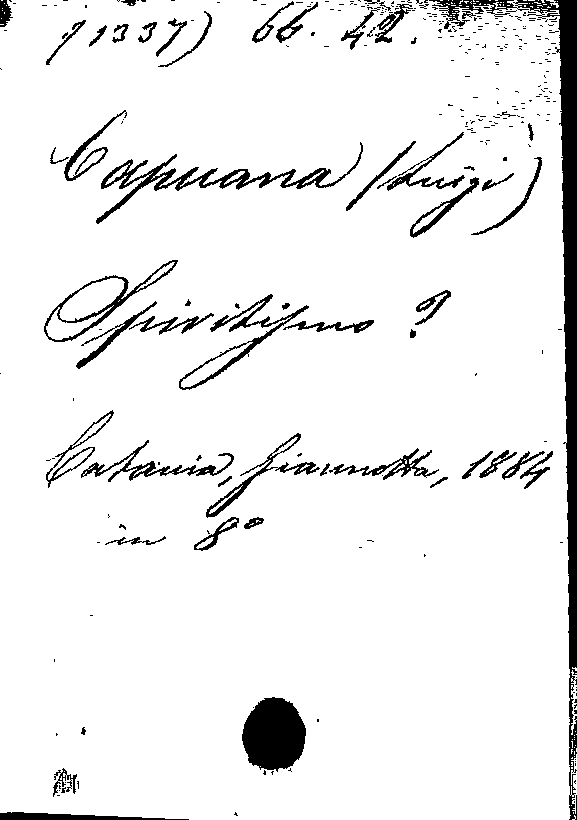 (1337) 66. 42.
Capuana (Luigi)
Spiritismo?
Catania, Giannotta, 1884
in 8°